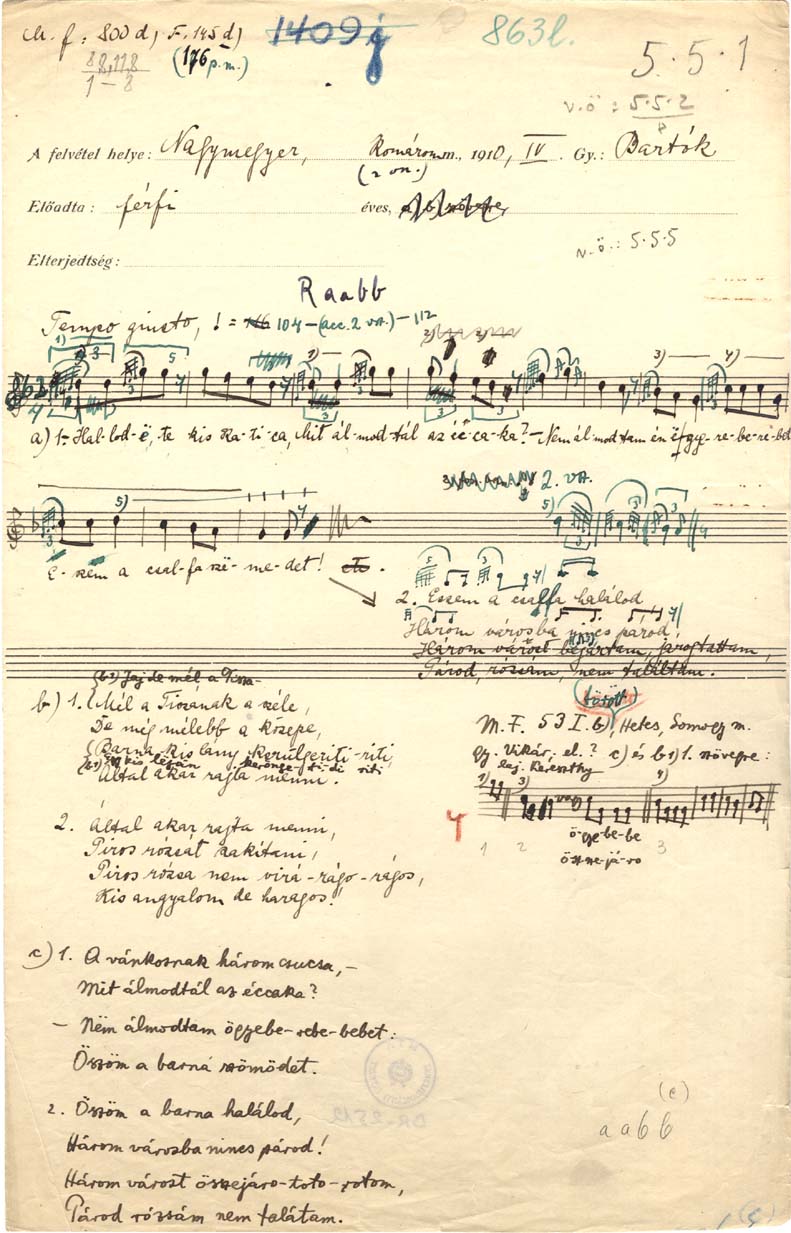 M. f: 800 d) F. 145 d)
1409 j
863 l.
88,118
1–8
(176 p.m.)
5.5.1
v.ö : 5.5.2
A felvétel helye: Nagymegyer, Komárom m., 1910, IV. Gy.: Bartók
(2 on.)
Előadta: férfi éves,
v.ö.: 5.5.5
Elterjedtség:
Raabb
Tempo giusto, = 104–(acc. 2 va.)–112
1) 3 5 3) 3) 4)
a) 1. Hal-lod-ë, te kis Ka-ti-ca, Mit ál-mod-tál az éc-ca-ka? – Nem ál-mod-tam én ëgy-re-be-re-bet
5)
2. va.
5)
E-szëm a csal-fa szë-me-det!
2. Eszem a csalfa halálod
Három városba nincs párod,
Három várost bejártam, jarogtattam,
Párod, rózsám, nem találtam.
(b2) Jaj de mél a Tisza-
b) 1. Mél a Tiszának a széle,
De még mélebb a közepe,
Barna kis lány kerülgeriti-riti,
Által akar rajta menni.
2. Által akar rajta menni,
Piros rózsát szakítani,
Piros rózsa nem virá-rágo-rágos,
Kis angyalom de haragos!
M. F. 53 I. b), Hetes, Somogy m.
Gy. Vikár; el. ? c) és b1) 1. szövegre:
lej. Kereszthy
1) 3) 4)
ö-gye-be-be
össze-já-ro
1 2 3
c) 1. A vánkosnak három csucsa,–
Mit álmodtál az éccaka?
– Nëm álmodtam ögyebe-rebe-bebet:
Öszöm a barna szömödet.
2. Öszöm a barna halálod,
Három városba nincs párod!
Három várost összejáro-toto-rotom,
Párod rózsám nem talátam.
(c)
a a b b